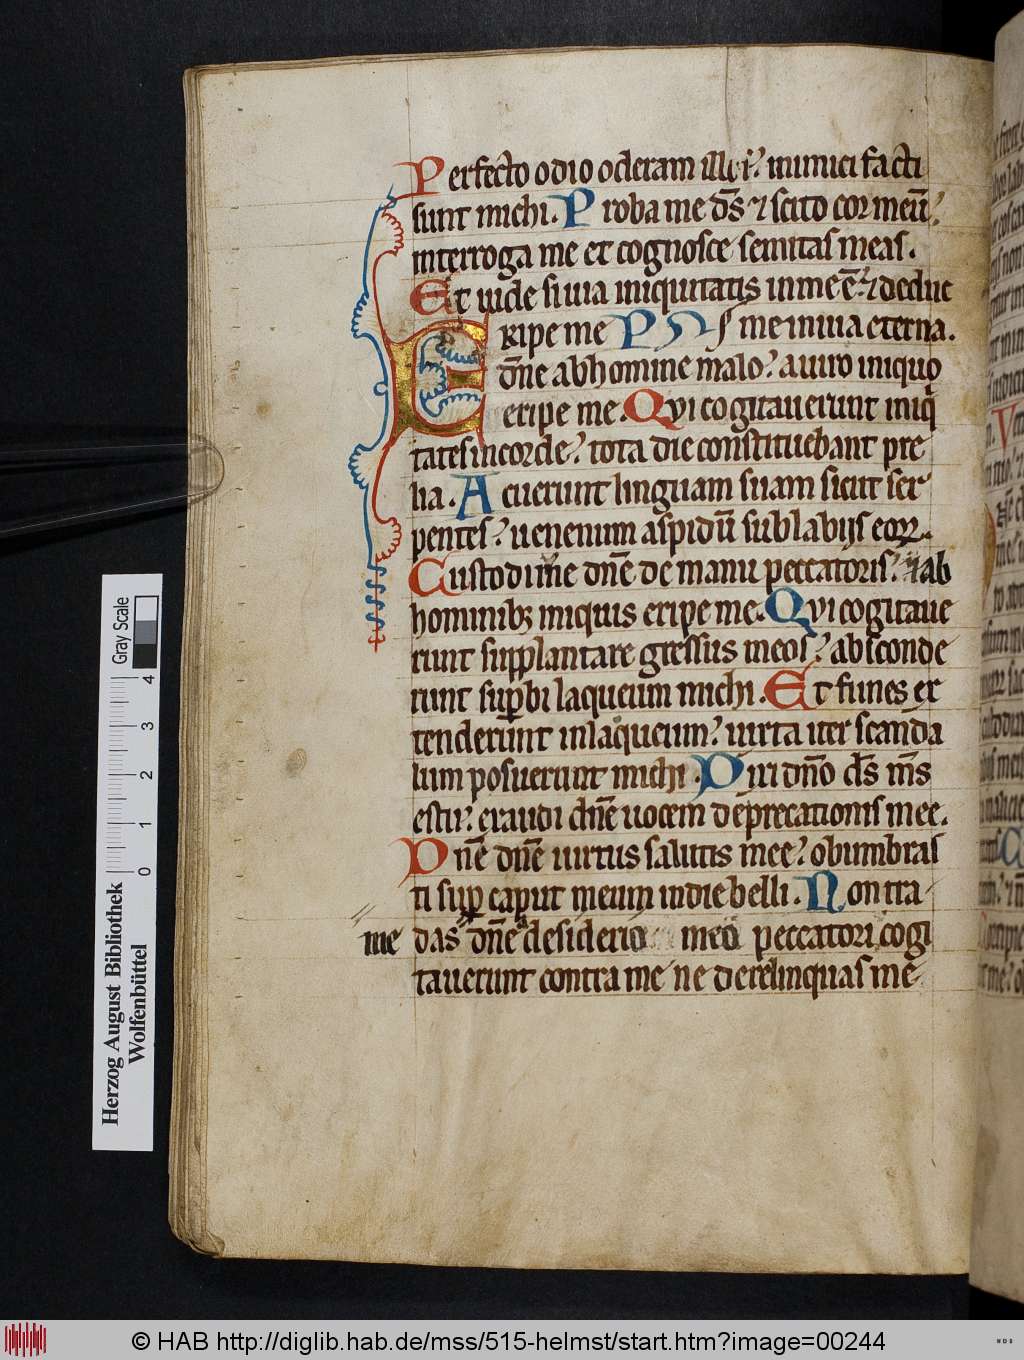 Perfecto odio oderam illos: inimici facti
sunt michi. Proba me ds̄ ⁊ scito cor meū:
interroga me et cognosce semitas meas.
Et uide si uia iniquitatis in me ē: ⁊ deduc
Eripe me Ps me in uia eterna.
dn̄e ab homine malo: a uiro iniquo
eripe me. Qvi cogitauerunt iniq
tates in corde: tota die constituebant pre
lia. Acuerunt linguam suam sicut ser
pentes: uenenum aspidū sub labijs eoꝝ.
Custodi me dn̄e de manu peccatoris: ⁊ ab
hominibꝫ iniquis eripe me. Qvi cogitaue
runt supplantare gressus meos: absconde
runt suꝑbi laqueum michi. Et funes ex
tenderunt in laqueum: iuxta iter scanda
lum posuerunt michi. Dixi dn̄o ds̄ ms̄
es tu: exaudi dn̄e uocem deprecationis mee.
Dn̄e dn̄e uirtus salutis mee: obumbras
ti suꝑ caput meum in die belli. Non tra
me das dn̄e a desiderio meo peccatori cogi
tauerunt contra me ne derelinquas me
Gray Scale
4
3
2
1
0
Herzog August Bibliothek
Wolfenbüttel
© HAB http://diglib.hab.de/mss/515-helmst/start.htm?image=00244